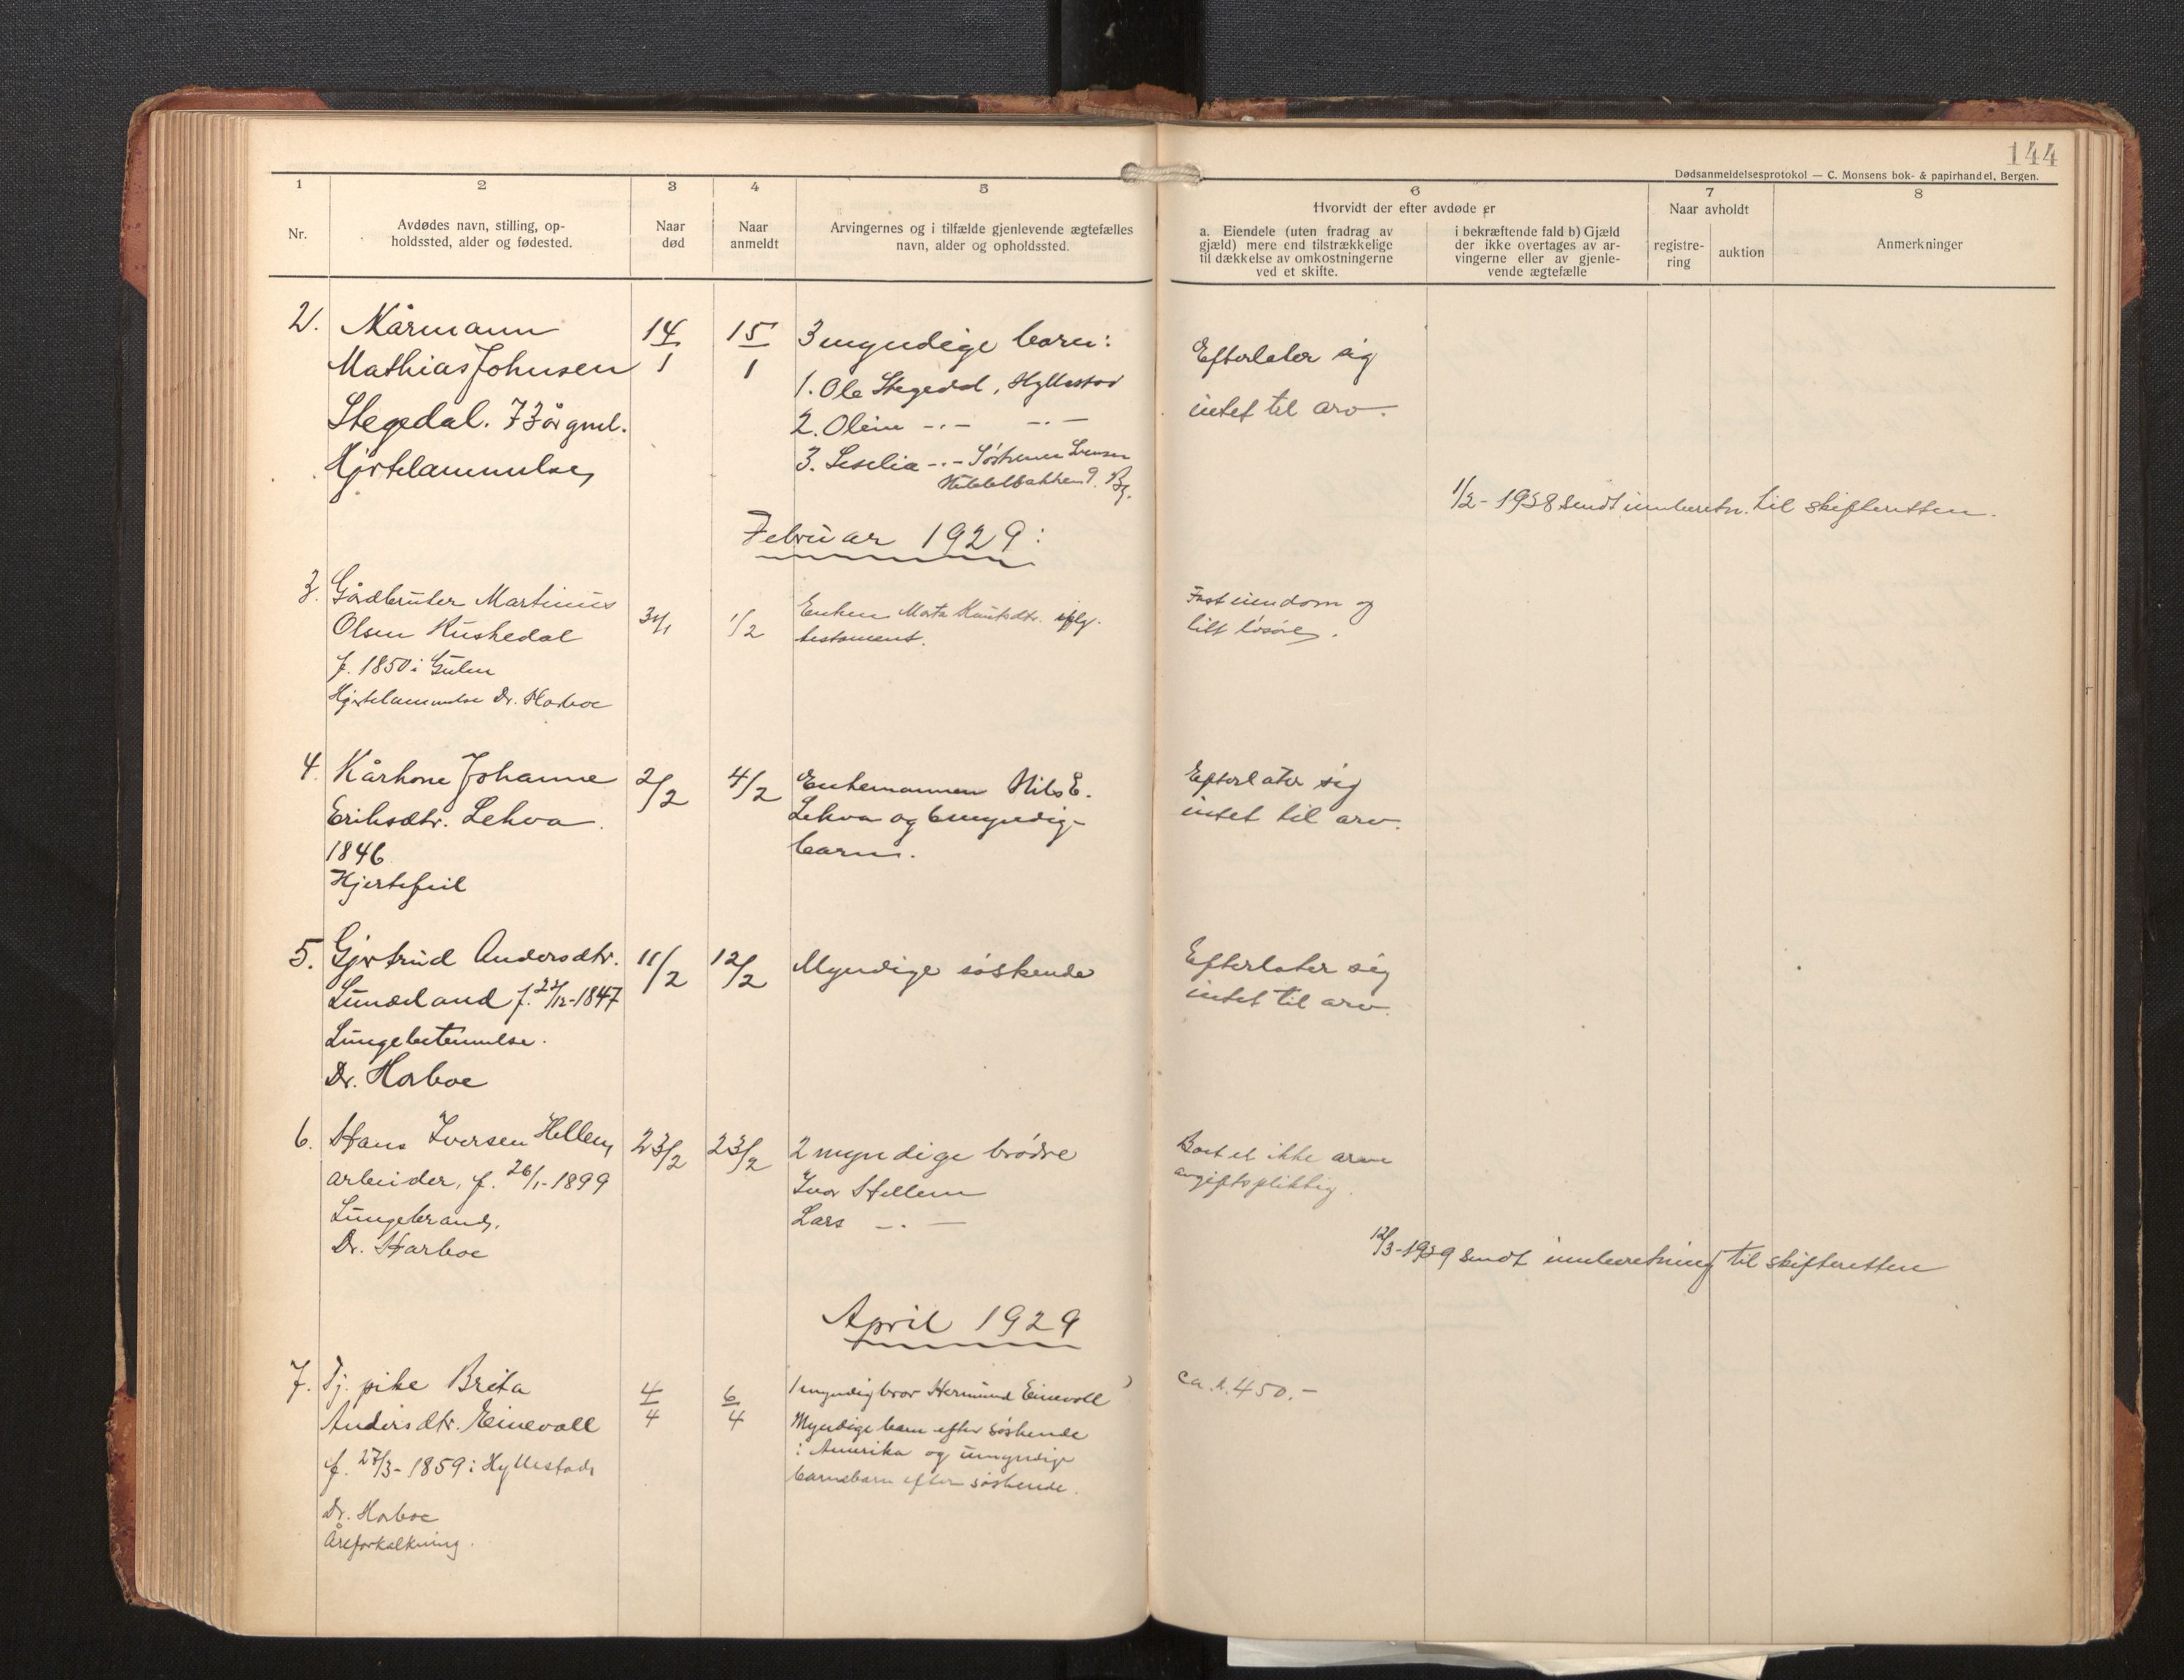 144
Dødsanmeldelsesprotokol — C. Monsens bok- & papirhandel, Bergen.
1
2
3
4
5
6
7
8
Nr.
Avdødes navn, stilling, op-
holdssted, alder og fødested.
Naar
død
Naar
anmeldt
Arvingernes og i tilfælde gjenlevende ægtefælles
navn, alder og opholdssted.
Hvorvidt der efter avdøde er
a. Eiendele (uten fradrag av
gjæld) mere end tilstrækkelige
til dækkelse av omkostningerne
ved et skifte.
i bekræftende fald b) Gjæld
der ikke overtages av ar-
vingerne eller av gjenle-
vende ægtefælle
Naar avholdt
registre-
ring
auktion
Anmerkninger
2. Kårmann
Mathias Johnsen
Stegedal. 73 år gml.
Hjertelammelse
14/1
15/1
3 myndige barn:
1. Ole Stegedal, Hyllestad
2. Oline -"- -"-
3. Seselia -"-
Efterlater sig
intet til arv.
sendt innberetn. til skifteretten.
Februar 1929:
3. Gårdbruker Martinus
Olsen Kuskedal
f. 1850 i Gulen
Hjertelammelse Dr. Harboe
31/1
1/2
Enken Marta Knutsdtr. iflg.
testament.
Fast eiendom og
litt løsøre.
4. Kårkone Johanne
Eriksdtr. Lekva.
1846
Hjertefeil
2/2
4/2
Enkemannen Nils E.
Lekva og 6 myndig-
barn.
Efterlater sig
intet til arv.
5. Gjertrud Andersdtr.
Sunderland f. 22/12-1847
Lungebetennelse.
Dr. Harboe
11/2
12/2
Myndige søskende
Efterlater sig
intet til arv.
6. Hans Iversen Hellem
arbeider, f. 26/1-1899
Lungebrand,
Dr. Harboe
23/2
23/2
2 myndige brødre
Ivar Hellem
Lars -"-
Boet et ikke arve
avgiftspliktig.
12/3-1929 sendt innberetning til skifteretten
April 1929
7. Tj. pike Brita
Andersdtr. Einevoll
f. 27/3-1859 i Hyllestad
Dr. Harboe
Åreforkalkning.
4/4
6/4
1 myndig bror Hermund Einevoll
Myndige barn efter søskende
i Amerika og umyndige
barnebarn efter søskende.
ca. k. 450.-